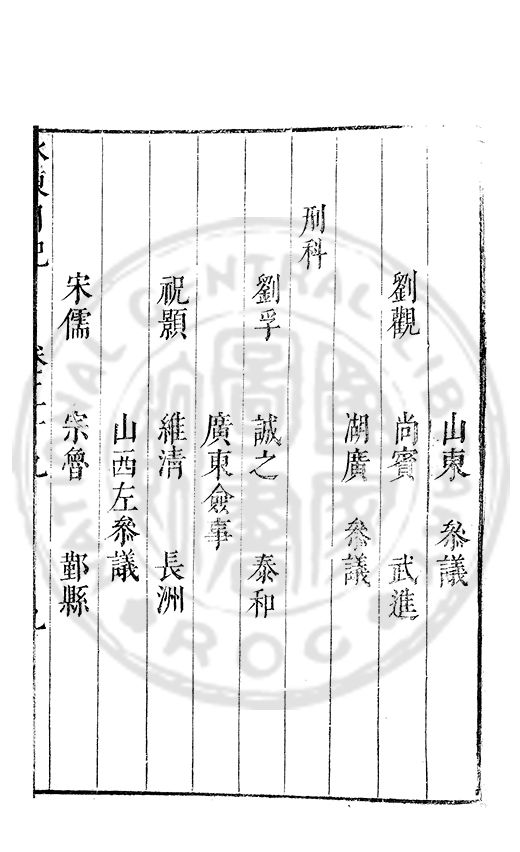 山東 叅議
劉觀 尚賓 武進
湖廣 叅議
刑科
劉孚 誠之 泰和
廣東僉事
祝顥 維清 長洲
山西左叅議
宋儒 宗魯 鄞縣